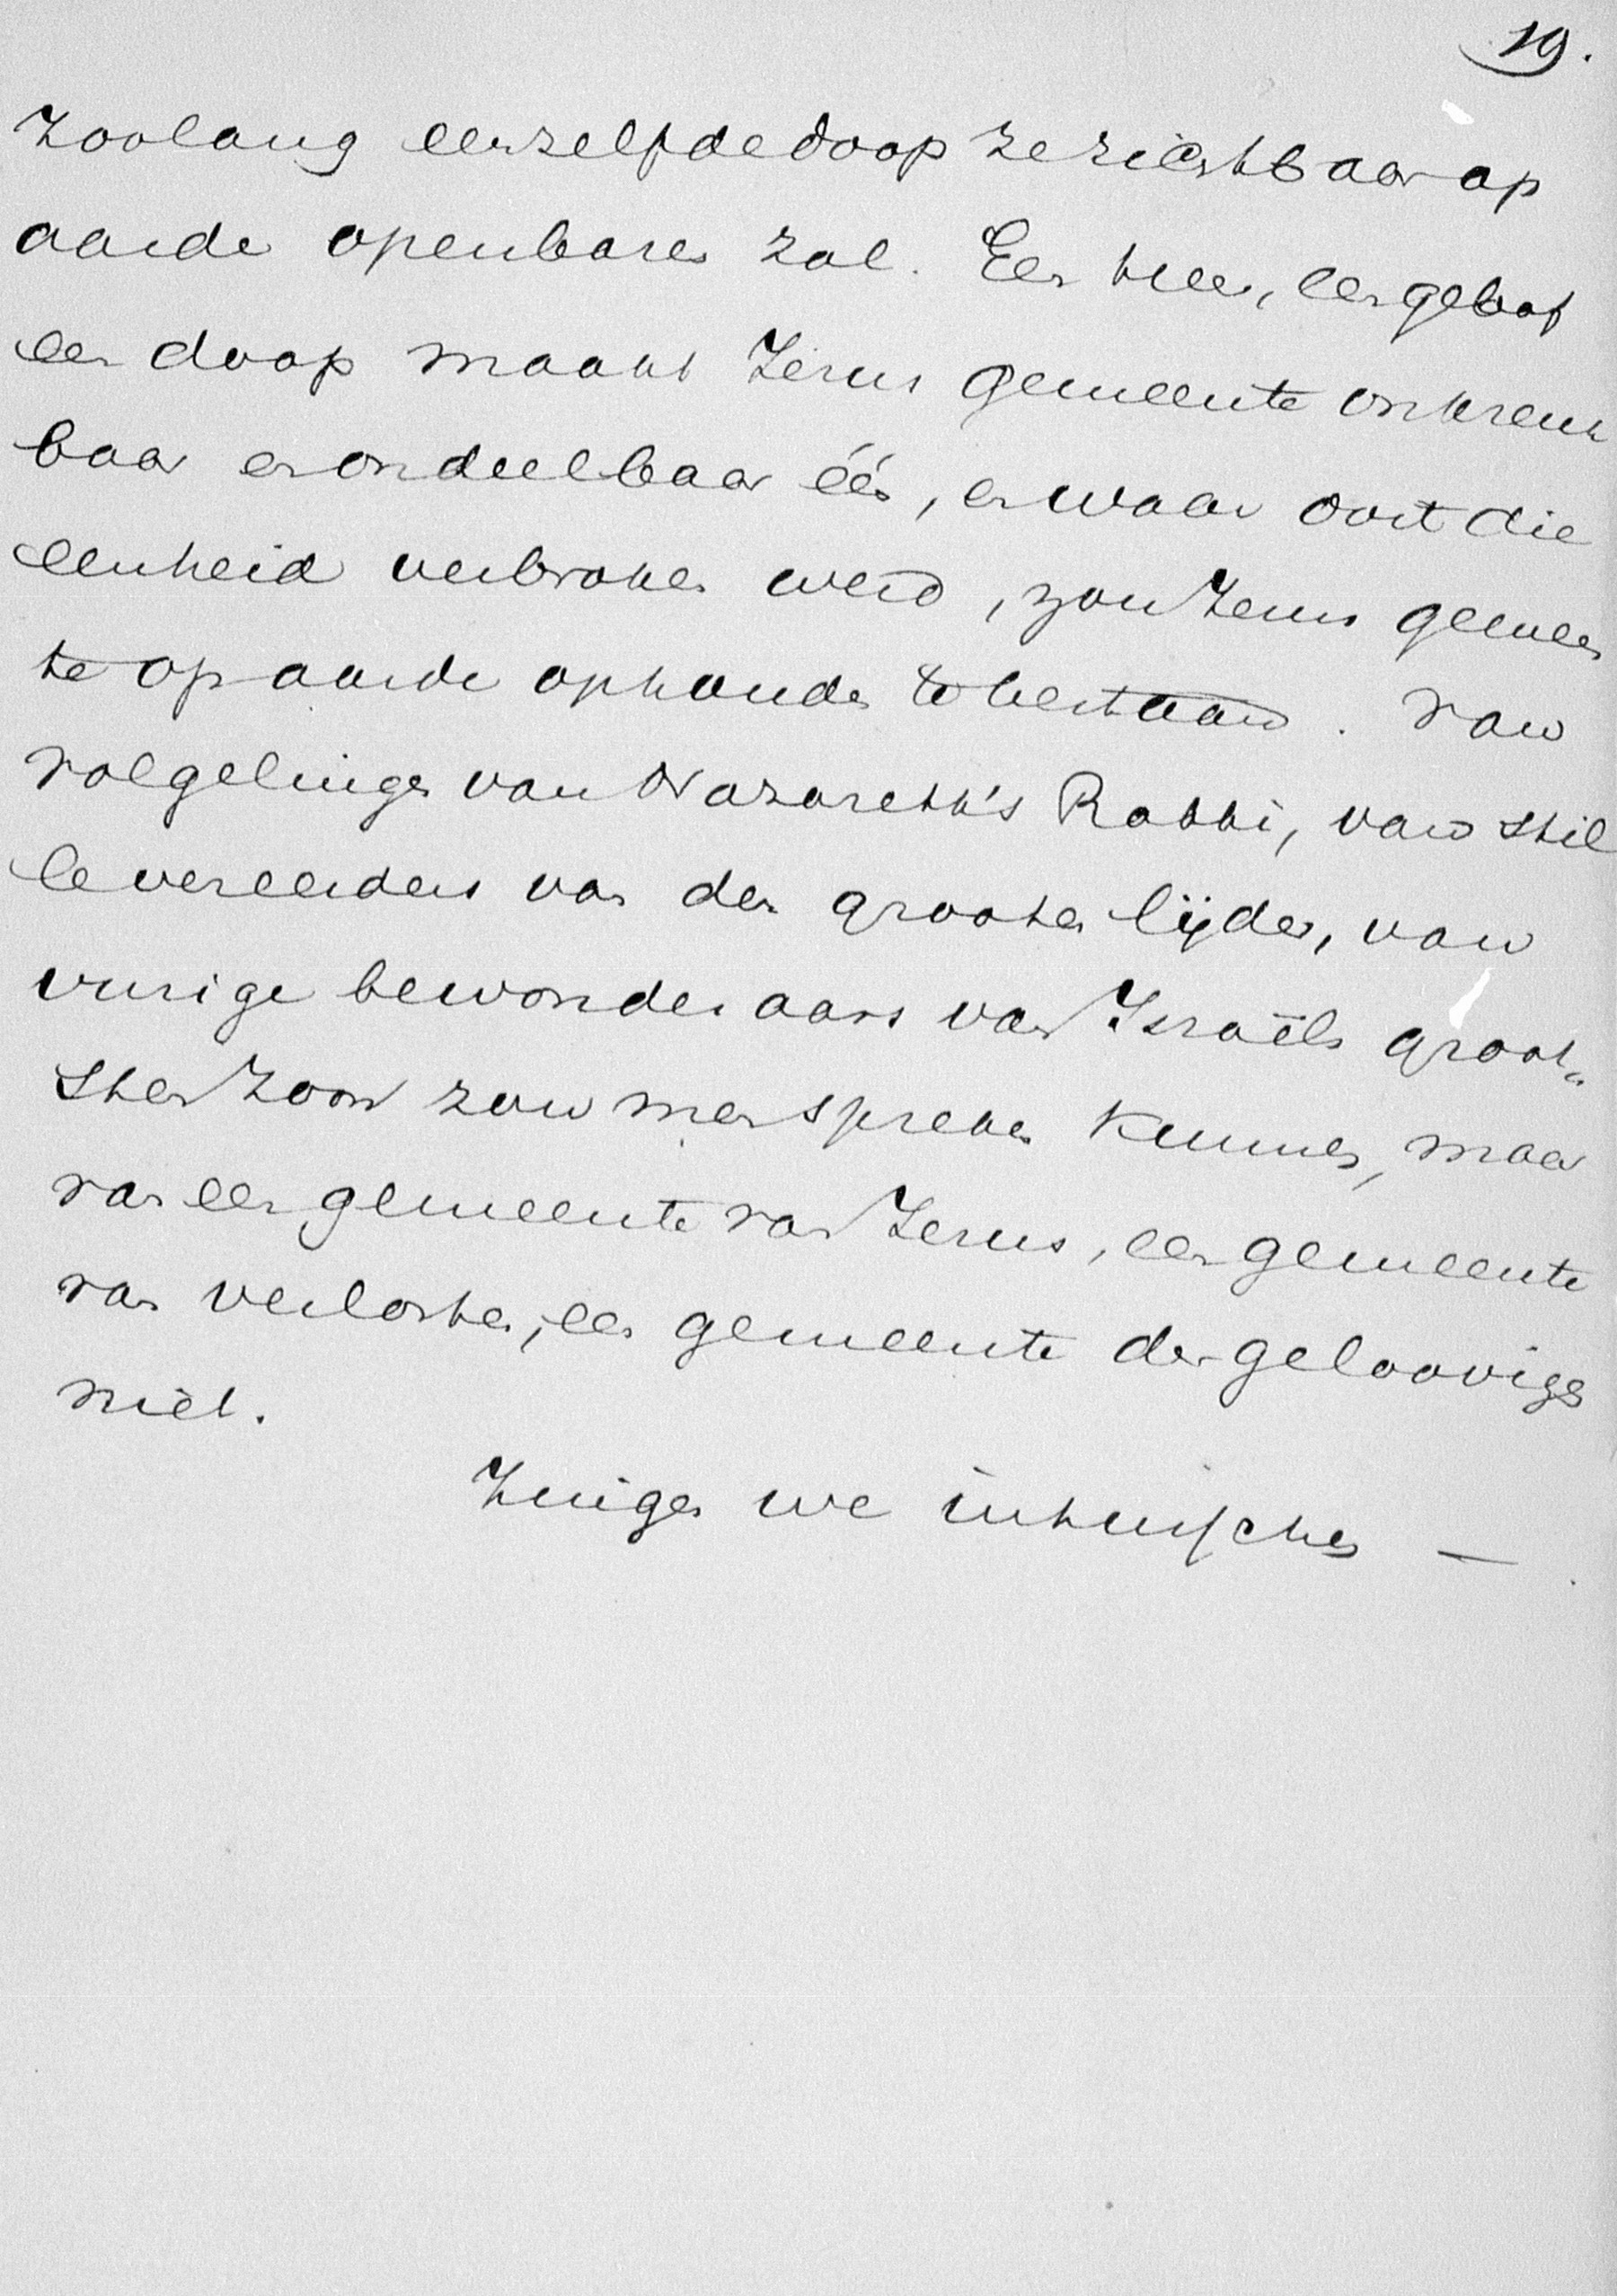 19.
Zoolang eenzelfde doop ze zichtbaar op
aarde openbaren zal. Een heer, een geloof
een doop maakt Jezus gemeente onkreuk
baar en ondeelbaar één, en waar ooit die
eenheid verbroken werd, zou Jezus gemeen
te op aarde ophouden te bestaan. Van
volgelingen van Nazareth's Rabbi, van stil
le vereerders van den grooten lijder, van
vurige bewonderaars van Israëls groot„
sten zoon zou men spreken kunnen, maar
van een gemeente van Jezus, een gemeente
van verlosten, een gemeente der geloovigen
niet.
Zuigen we intusschen —